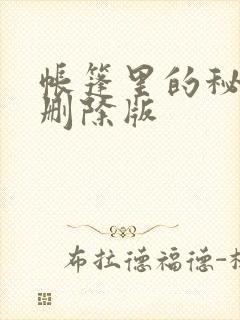 帐篷里的秘
删除版
布拉德福德-